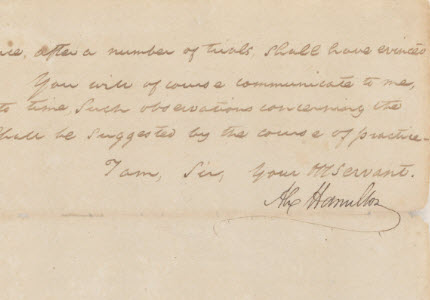 nce, after a number of trials, shall have evinced
You will of course communicate to me,
to time, such observations concerning the
shall be suggested by the course of practice-
I am, Sir, Your Ob Servant.
Alx Hamilton